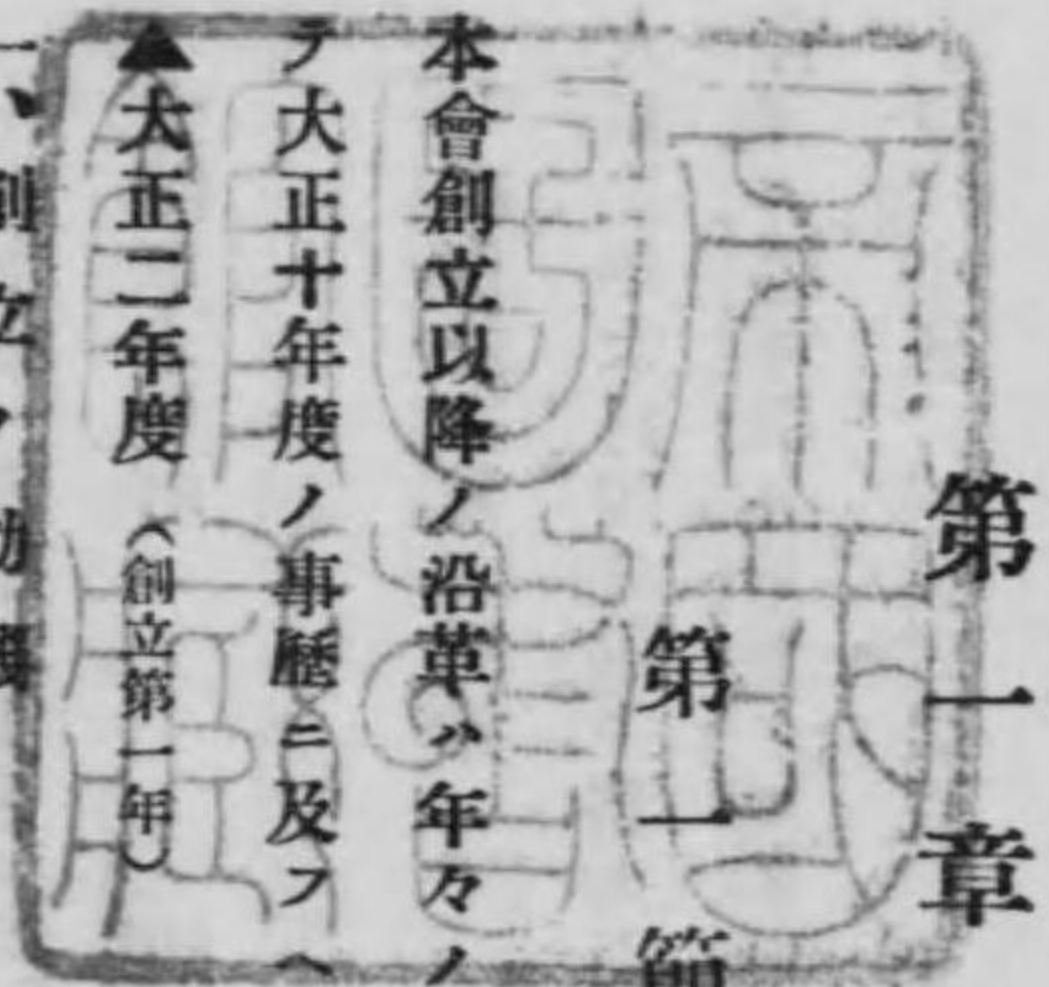 第一章
第一節
本會創立以降ノ沿革ハ年々ノ
テ大正十年度ノ事歷ニ及フヘ
▲大正二年度（創立第一年）
一、創立ノ動機